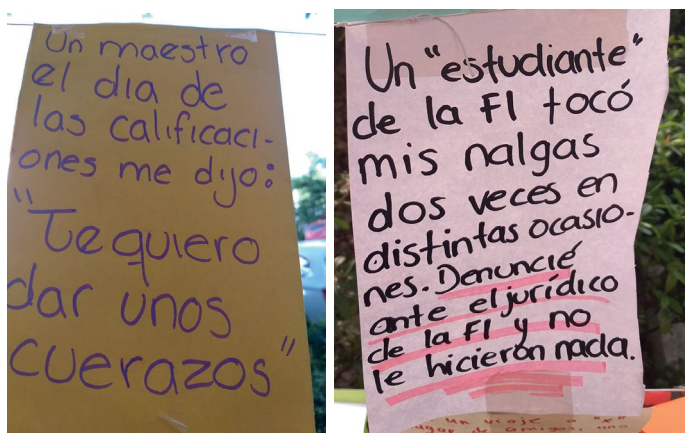 Un maestro
el dia de
las calificaci-
ones me dijo:
"Te quiero
dar unos
cuerazos"
Un "estudiante"
de la FI tocó
mis nalgas
dos veces en
distintas ocasio-
nes. Denuncié
ante el jurídico
de la FI y no
le hicieron nada.
un viaje a "x"
lugar de amigos, una